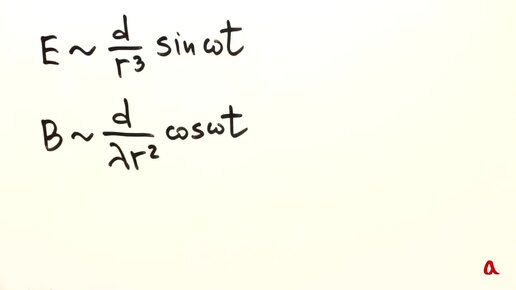 E ~ d/r³ sin ωt
B ~ d/λr² cos ωt
a